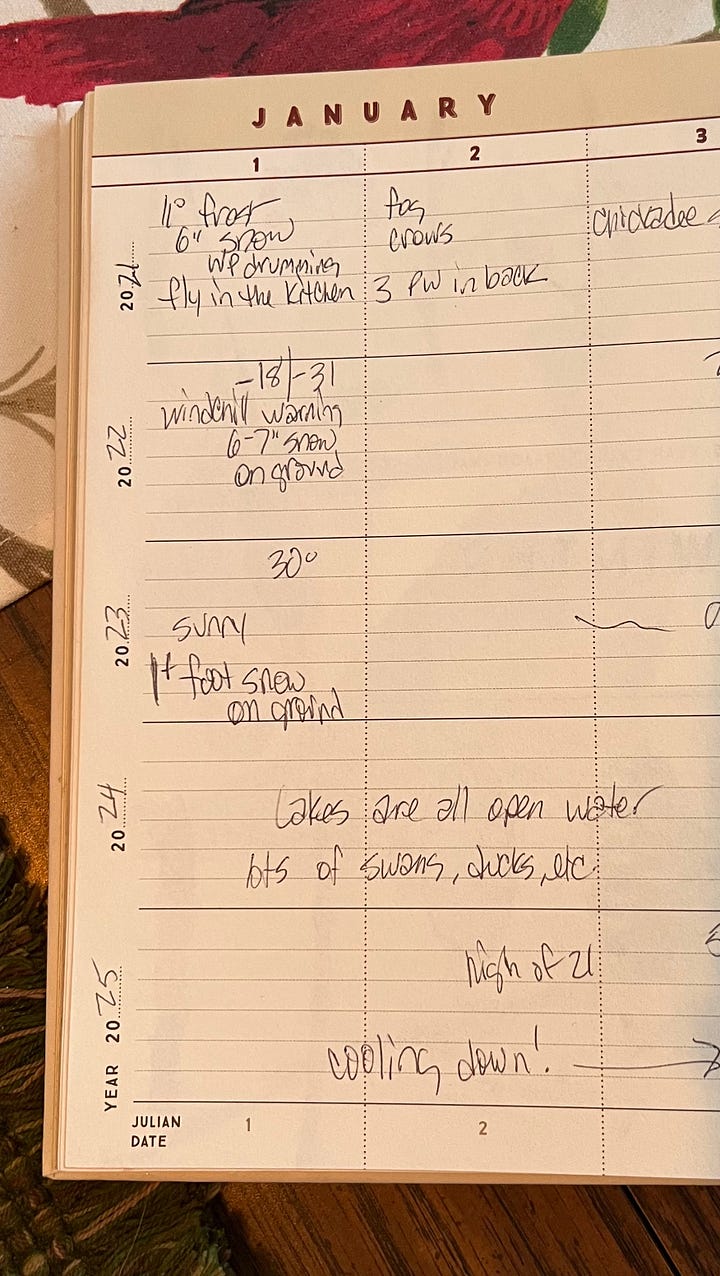 JANUARY
1 2 3
2021
11° frost
6" snow
WP drumming
fly in the kitchen
fog
crows
3 PW in back
chickadee
2022
-18/-31
windchill warning
6-7" snow
on ground
2023
30°
sunny
1+ foot snow
on ground
2024
Lakes are all open water
lots of swans, ducks, etc.
YEAR 2025
high of 21
cooling down!
JULIAN
DATE
1 2